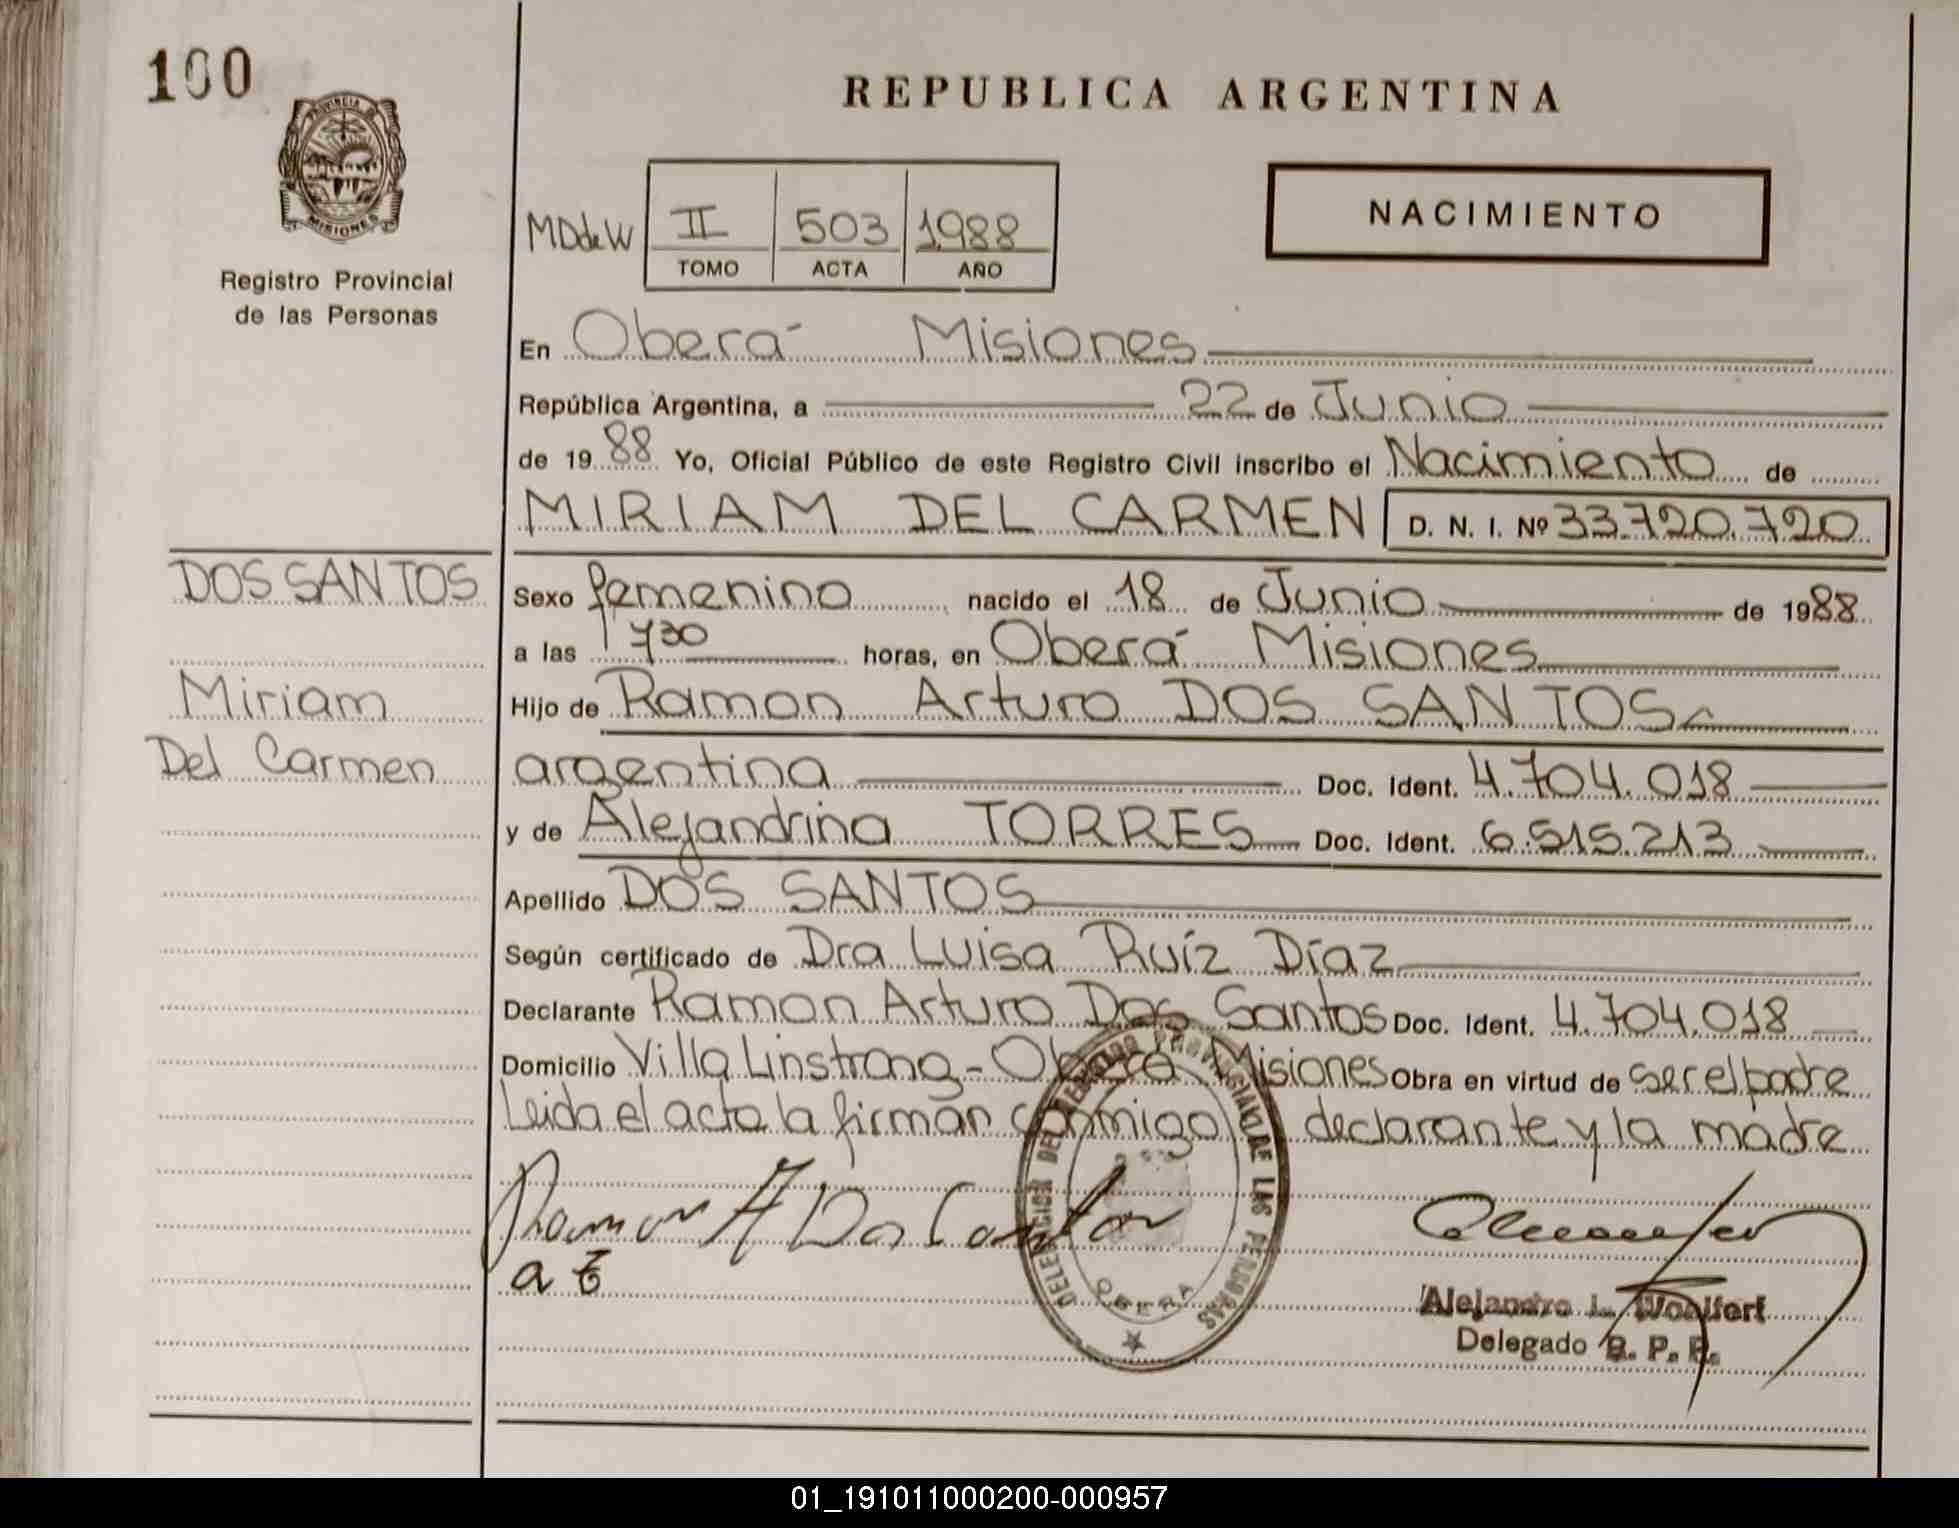 100
REPUBLICA ARGENTINA
PROVINCIA DE
MISIONES
Registro Provincial
de las Personas
NACIMIENTO
MDdeW II 503 1988
TOMO ACTA AÑO
En Oberá Misiones
República Argentina, a 22 de Junio
de 19 88 Yo, Oficial Público de este Registro Civil inscribo el Nacimiento de
MIRIAM DEL CARMEN D. N. I. Nº 33.720.720
DOS SANTOS
Miriam
Del Carmen
Sexo femenino nacido el 18 de Junio de 1988
a las 1730 horas, en Oberá Misiones
Hijo de Ramon Arturo DOS SANTOS
argentina Doc. Ident. 4.704.018
y de Alejandrina TORRES Doc. Ident. 6.515.213
Apellido DOS SANTOS
Según certificado de Dra Luisa Ruíz Díaz
Declarante Ramon Arturo Dos Santos Doc. Ident. 4.704.018
Domicilio Villa Linstrong - Oberá Misiones Obra en virtud de ser el padre
Leida el acta la firman conmigo declarante y la madre
Ramon A Dos Santos
a t
DELEGACION DEL REGISTRO PROVINCIAL DE LAS PERSONAS
OBERA
Alejandro L. Woolfert
Delegado R. P. P.
01_191011000200-000957